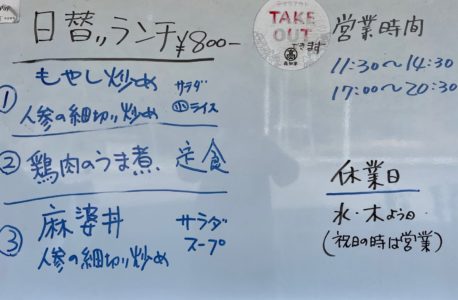 日替ランチ ¥800-
① もやし炒め サラダ
人参の細切り炒め 小ライス
② 鶏肉のうま煮 定食
③ 麻婆丼 サラダ
人参の細切り炒め スープ
TAKE
OUT
できます
営業時間
11:30〜14:30
17:00〜20:30
休業日
水・木よう日
(祝日の時は営業)